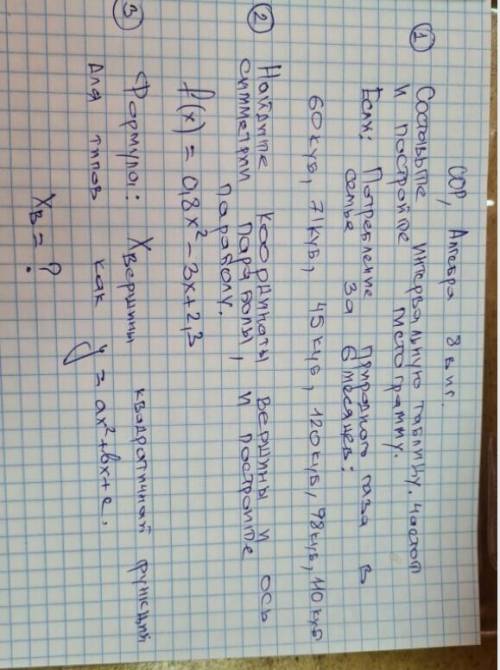 СОР, Алгебра 8 в и г.
① Составьте интервальную таблицу частот
и постройте гистограмму.
Если: Потребление природного газа в
семье за 6 месяцев:
60 куб, 71 куб, 45 куб, 120 куб, 98 куб, 110 куб
② Найдите координаты вершины и ось
симметрии параболы, и постройте
параболу.
f(x) = 0,8x² - 3x + 2,3
③ Формула: Xвершины квадратичной функций
для типов как y = ax² + bx + c.
Xв = ?